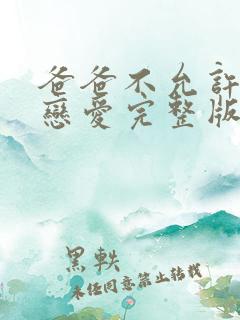 爸爸不允許
戀愛完整版
黑軼
未經同意禁止轉載